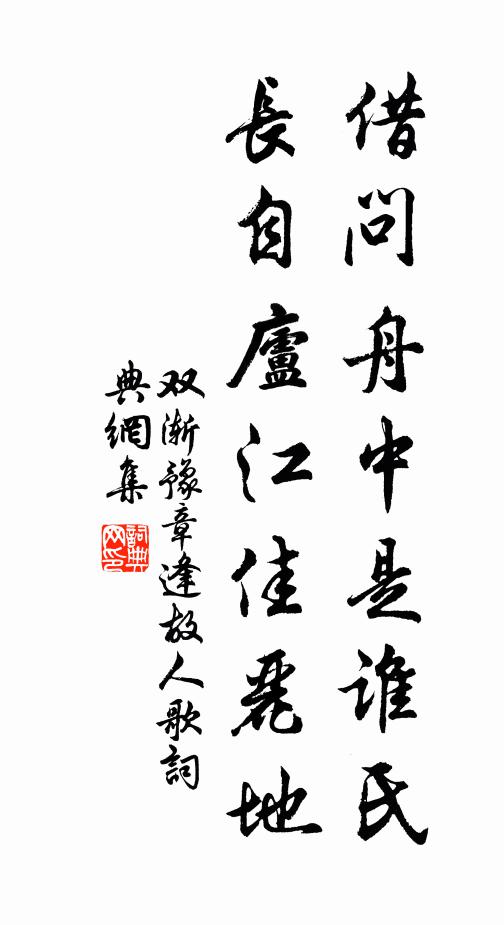 借問舟中是誰氏
長自廬江佳麗地
双渐豫章逢故人歌詞
典網集
詞典
网印